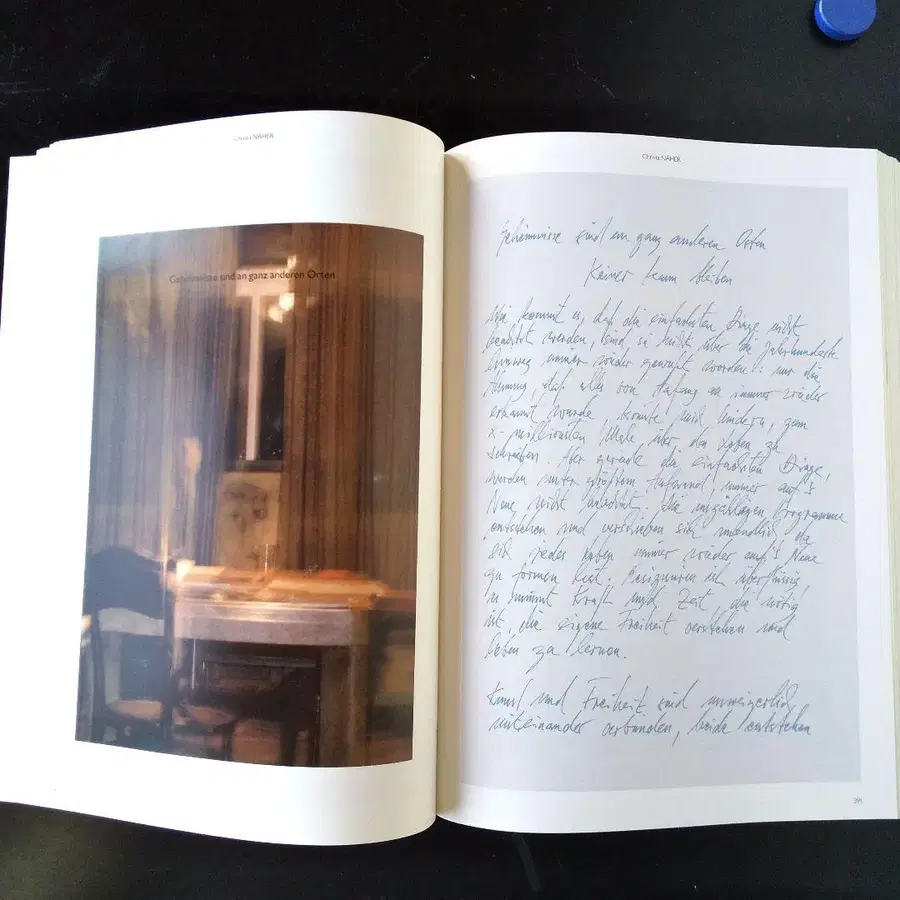 Christa NÄHER
Geheimnisse sind an ganz anderen Orten
Christa NÄHER
Geheimnisse sind an ganz anderen Orten
Keiner kann bleiben
Wie kommt es, daß die einfachsten Dinge nicht
werden, sind sie nicht über die Jahrhunderte
hinweg immer wieder worden: nur die
Ahnung, daß alles von Anfang an immer wieder
wurde, könnte mich hindern, zum
x-millionsten Male über den zu
schreiben. Aber gerade die einfachsten Dinge,
werden unter größtem Aufwand, immer auf's
Neue nicht. Die unzähligen Programme
entstehen und verschieben sich unendlich, da
sich jeder immer wieder auf's Neue
zu formen hat.
nimmt Kraft und Zeit, die nötig
ist, die eigene Freiheit verstehen und
leben zu lernen.
Kunst und Freiheit sind unweigerlich
miteinander verbunden, beide entstehen